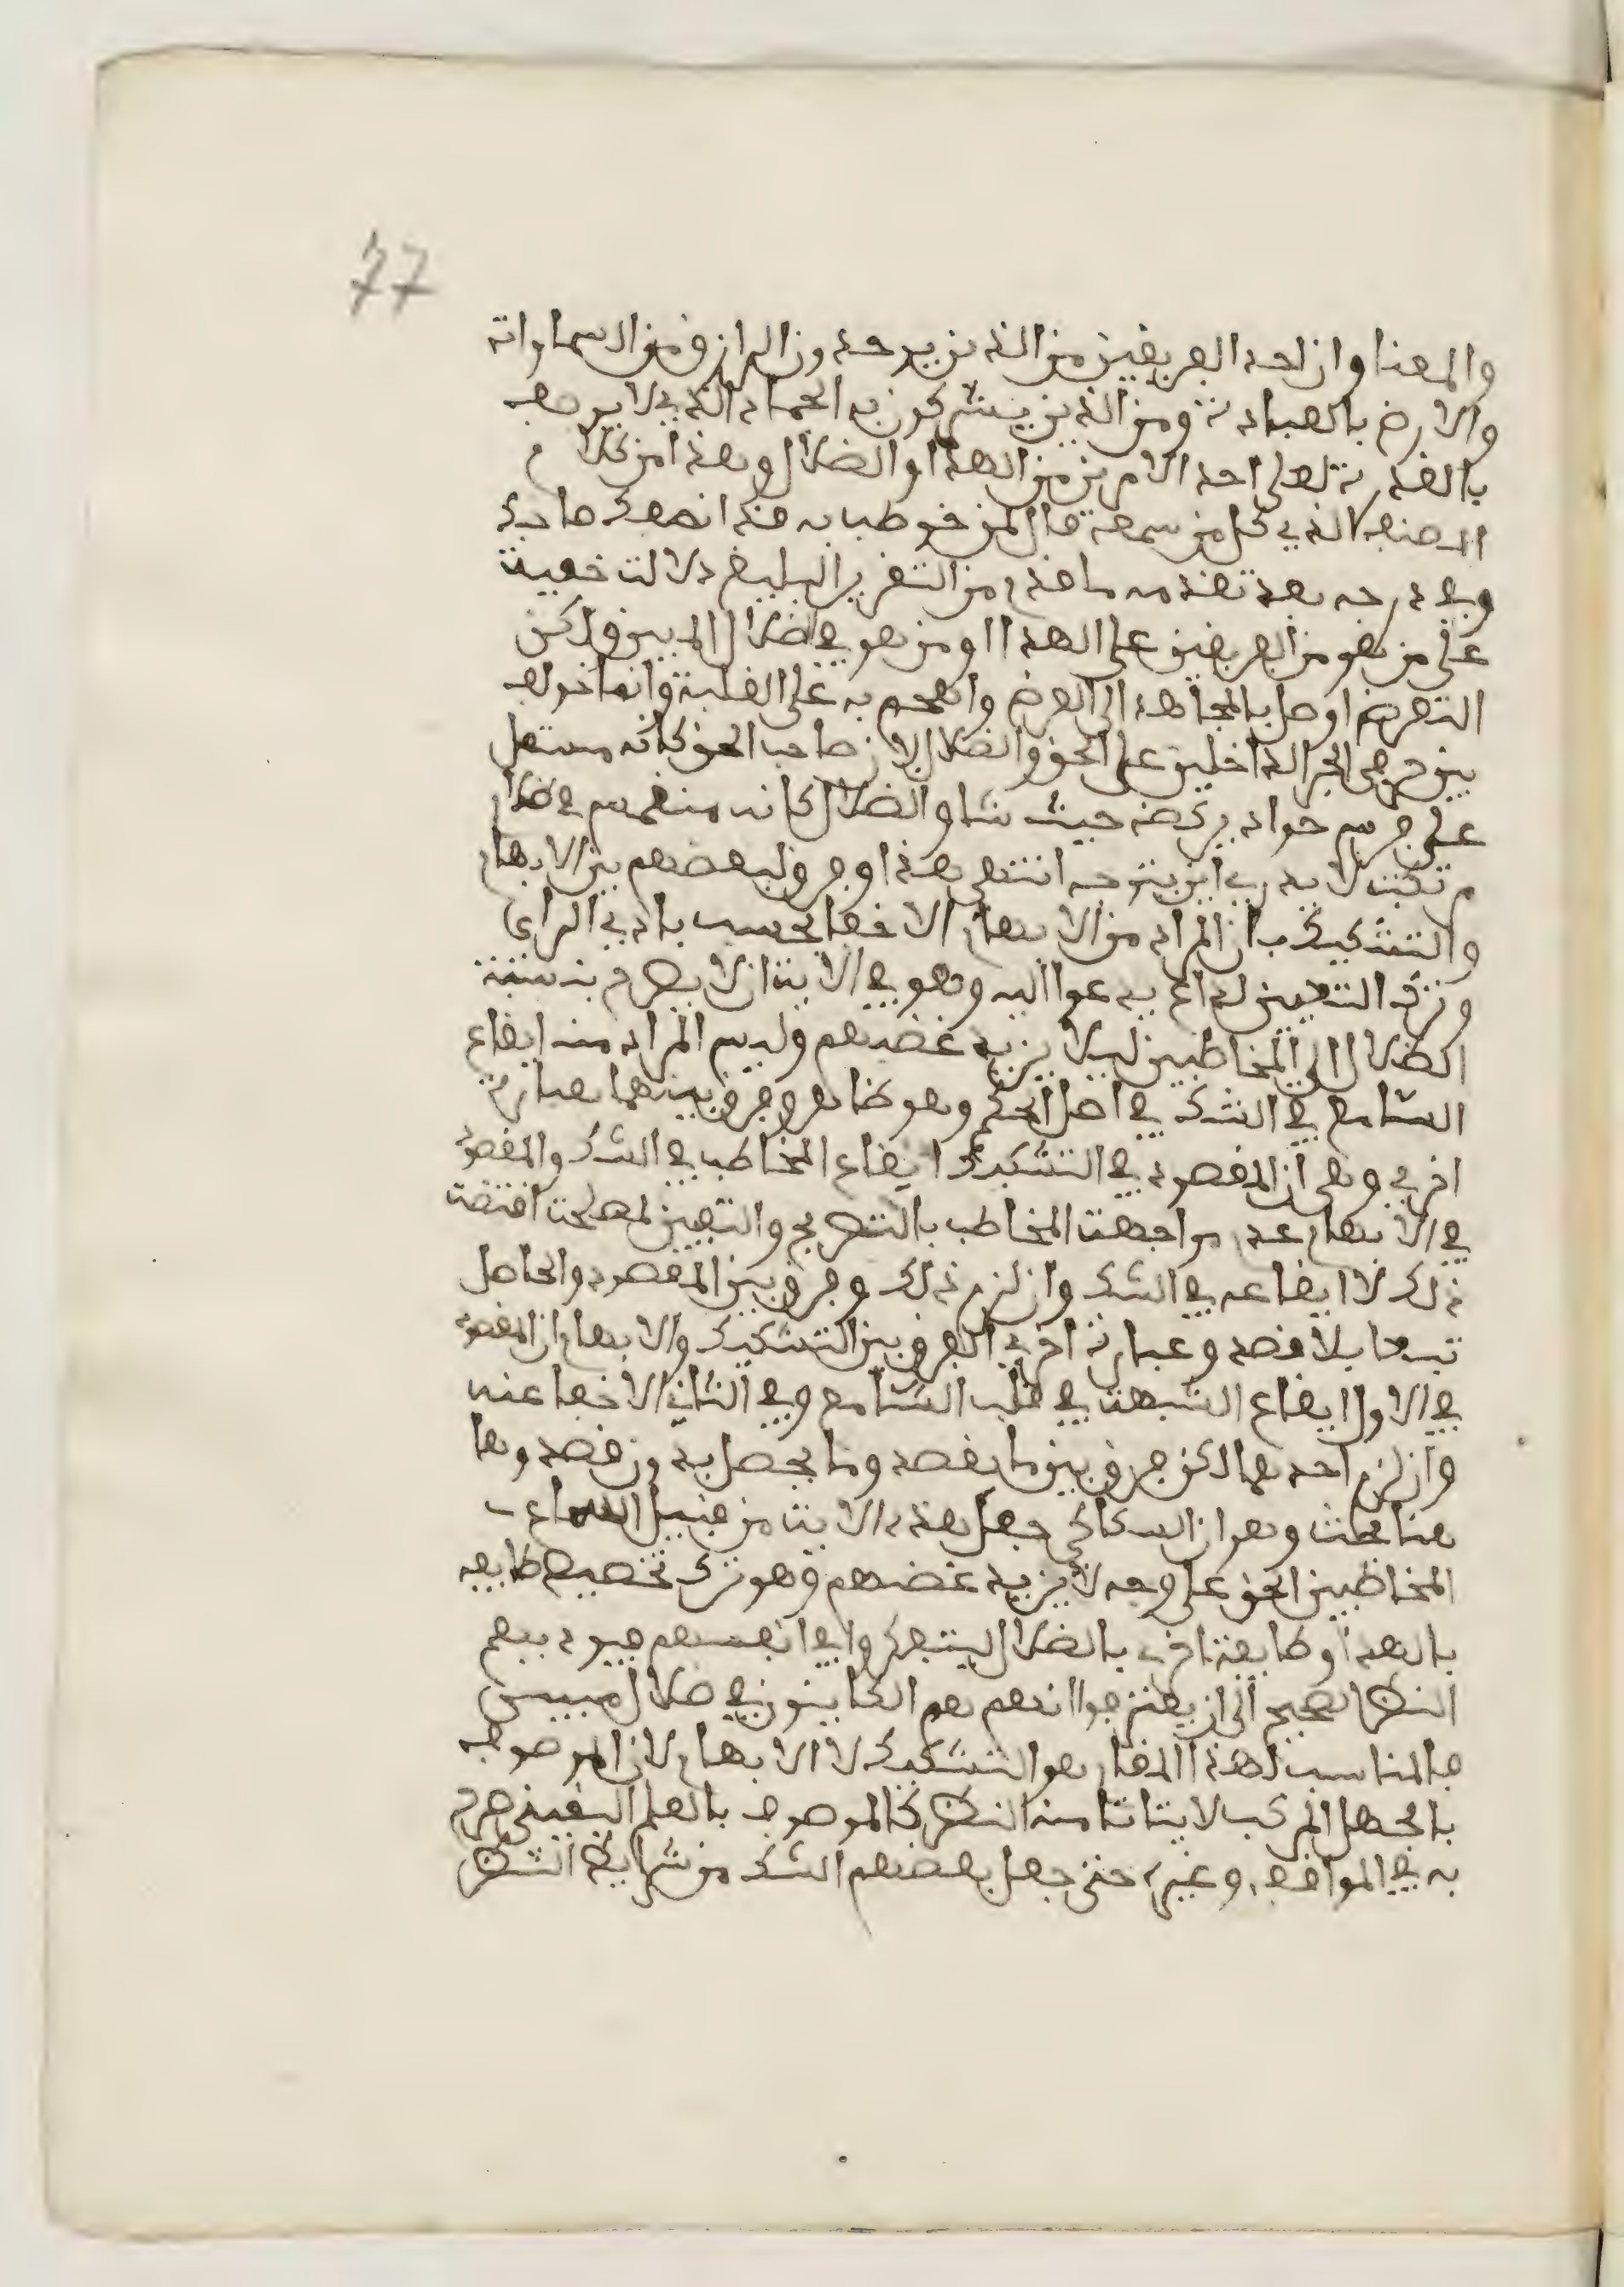 77
والمعنا وان احد الفريقين من الذين يوحدون الرازق من السماوات
والارض بالعبادة ومن الذين يشركون به الجماد الذي لا يوصف
بالقدرة لعلى احد الامرين من الهدا والضلال وهذا من كلام
المنصف الذي كل من سمعه قال لمن خوطب به قد انصفك صاحبك
وفي درجه بعد تقدمه ما قدم من التقرير البليغ دلالت خفيت
على من هو من الفريقين على الهدا او من هو في الضلال المبين ولكن
التعريض اوصل بالمجادلة الى الغرض واهجم به على الغلبة وانما خولف
بين حرفي الجر الداخلين على الحق والضلال لان صاحب الحق كانه مستعل
على فرس جواد يركضه حيث شا والضلال كانه منغمس في ظلام
مرتبك لا يدري اين يتوجه انتهى هذا وفرق بعضهم بين الابهام
والتشكيك بان المراد من الابهام الاخفا بحسب بادي الراي
وترك التعيين لداع يدعوا اليه وهو في الايت ان لا يصرح بنسبة
الضلال الى المخاطبين ليلا يزيد غضبهم وليس المراد منه ايقاع
السامع في الشك في اصل الحكم وهو ظاهر وفرق بينهما بعبارة
اخرى وهى ان المقصود في التشكيك ايقاع المخاطب في الشك والمقصود
في الابهام عدم مواجهت المخاطب بالتصريح والتعيين لمصلحت اقتضت
ذلك لا ايقاعه في الشك وان لزم ذلك وفرق بين المقصود والحاصل
تبعا بلا قصد وعبارة اخرى الفرق بين التشكيك والابهام ان المقصود
في الاول ايقاع الشبهت في قلب السامع وفي الثاني الاخفا عنه
وان لزم احدهما لكن فرق بين ما يقصد وما يحصل بدون قصد وها
هنا بحث وهو ان السكاكي جعل هذه الايت من قبيل اسماع
المخاطبين الحق على وجه لا يزيد غضبهم وهو ترك تخصيص طايفه
بالهدا وطايفة اخرى بالضلال ليتفكروا في انفسهم فيوديهم
النظر الصحيح الى ان يعترفوا انهم هم الكاينون في ضلال مبين
فالمناسب لهذا المقام هو التشكيك لا الابهام لان الموصوف
بالجهل المركب لا يتاتا منه النظر كالموصوف بالعلم اليقيني صرح
به في المواقف وغيره حتى جعل بعضهم الشك من شرايط النظر